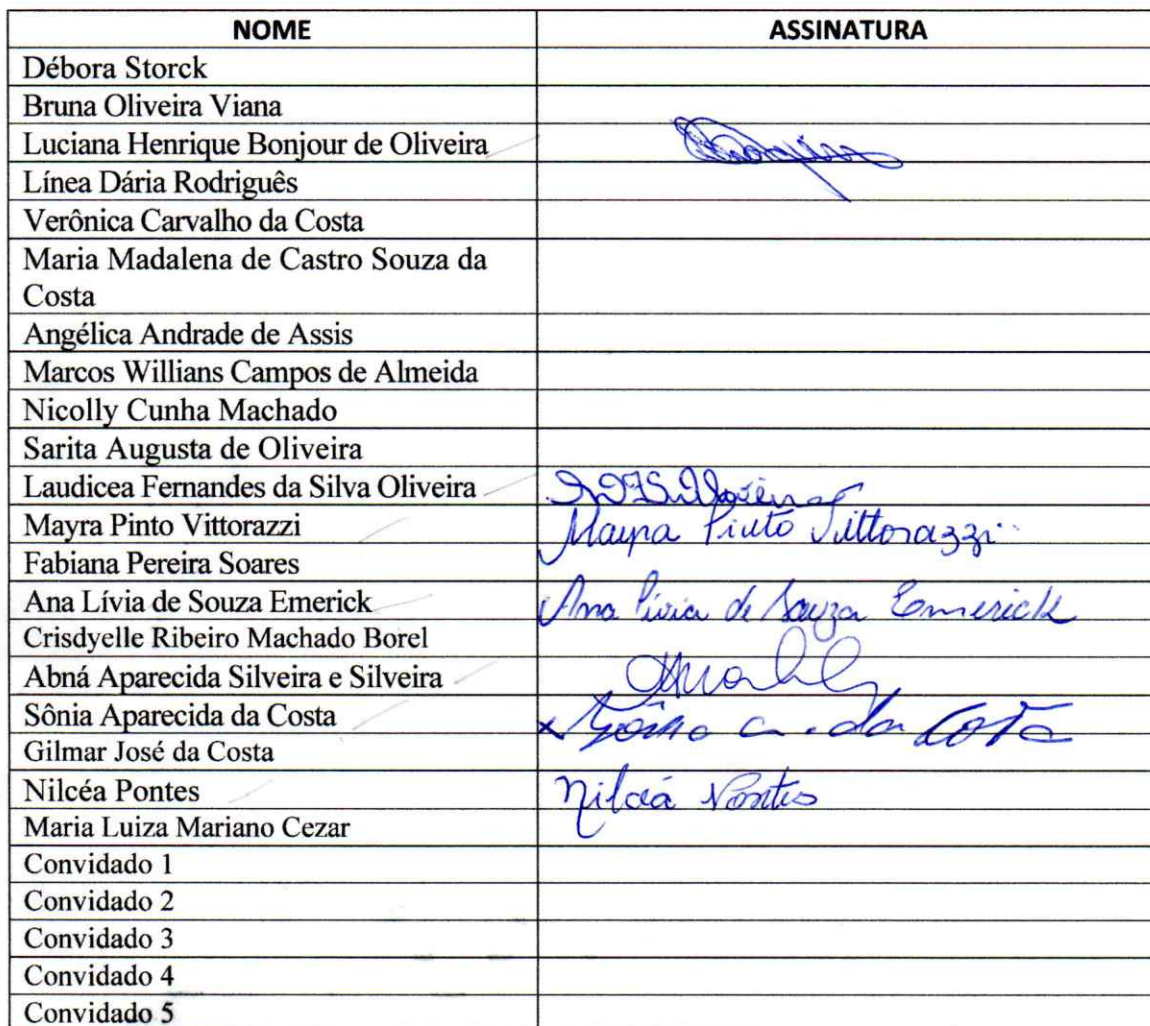 NOME ASSINATURA
Débora Storck
Bruna Oliveira Viana
Luciana Henrique Bonjour de Oliveira
Línea Dária Rodriguês
Verônica Carvalho da Costa
Maria Madalena de Castro Souza da
Costa
Angélica Andrade de Assis
Marcos Willians Campos de Almeida
Nicolly Cunha Machado
Sarita Augusta de Oliveira
Laudicea Fernandes da Silva Oliveira
Mayra Pinto Vittorazzi Mayra Pinto Vittorazzi
Fabiana Pereira Soares
Ana Lívia de Souza Emerick Ana Lívia de Souza Emerick
Crisdyelle Ribeiro Machado Borel
Abná Aparecida Silveira e Silveira
Sônia Aparecida da Costa x Sônia a. da Costa
Gilmar José da Costa
Nilcéa Pontes Nilcéa Pontes
Maria Luiza Mariano Cezar
Convidado 1
Convidado 2
Convidado 3
Convidado 4
Convidado 5